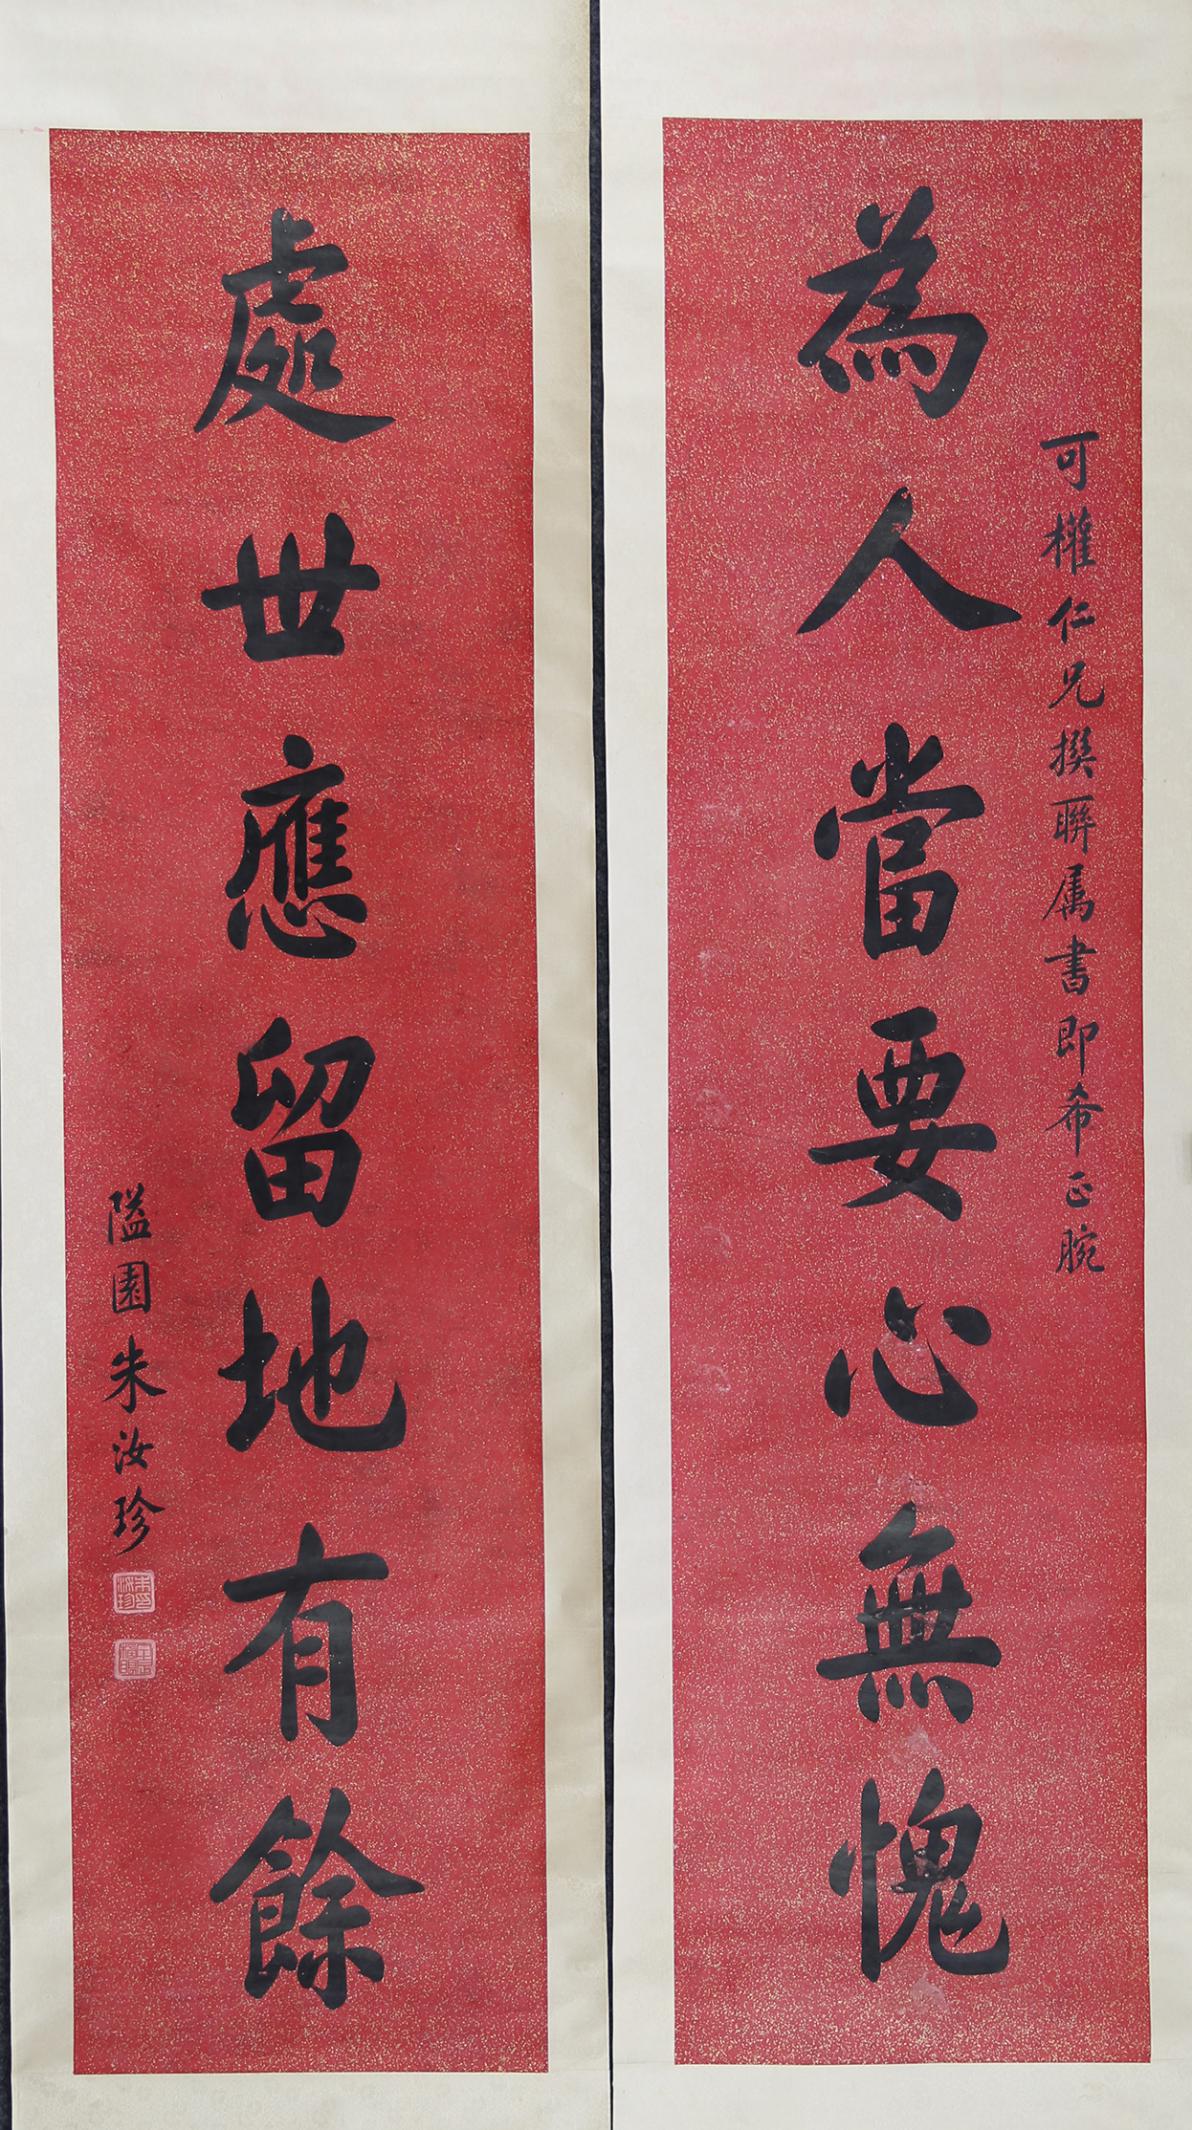 可權仁兄撰聯属書即希正腕
為人當要心無愧
處世應留地有餘
隘園朱汝珍